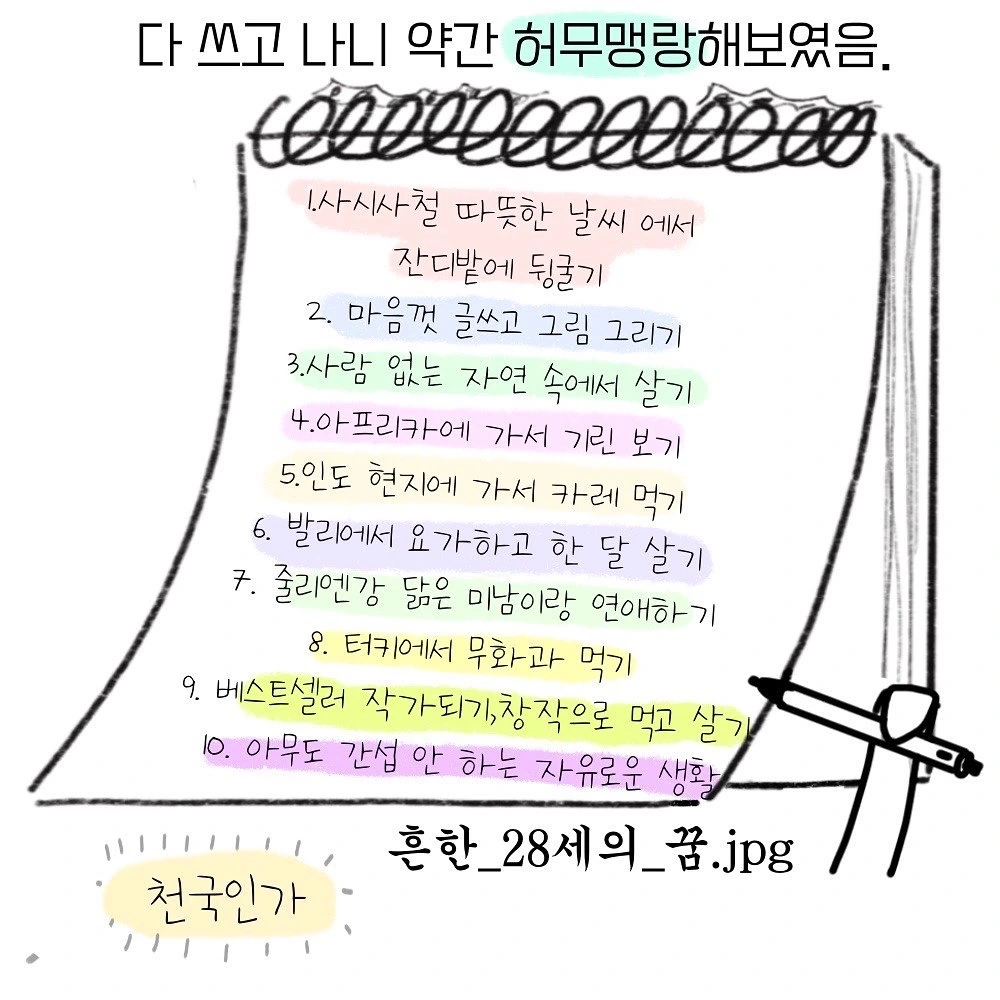 다 쓰고 나니 약간 허무맹랑해보였음.
1.사시사철 따뜻한 날씨 에서
잔디밭에 뒹굴기
2. 마음껏 글쓰고 그림 그리기
3.사람 없는 자연 속에서 살기
4.아프리카에 가서 기린 보기
5.인도 현지에 가서 카레 먹기
6. 발리에서 요가하고 한 달 살기
7. 줄리엔강 닮은 미남이랑 연애하기
8. 터키에서 무화과 먹기
9. 베스트셀러 작가되기,창작으로 먹고 살기
10. 아무도 간섭 안 하는 자유로운 생활
흔한_28세의_꿈.jpg
천국인가